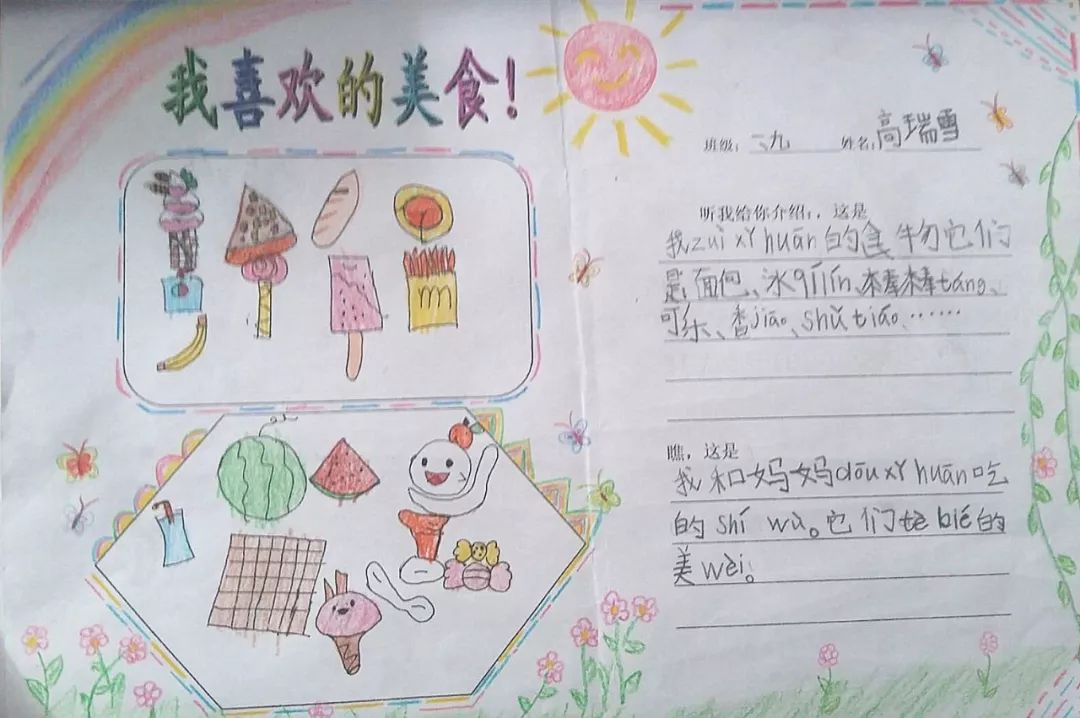 我喜欢的美食!
班级: 二九 姓名: 高瑞雪
听我给你介绍:, 这是
我zuì xǐ huān 的食物它们
是面包、冰qí lín、棒棒táng、
可乐、香jiāo、shǔ tiáo、……
瞧，这是
我和妈妈dōu xǐ huān吃
的 shí wù。它们tè bié的
美wèi。